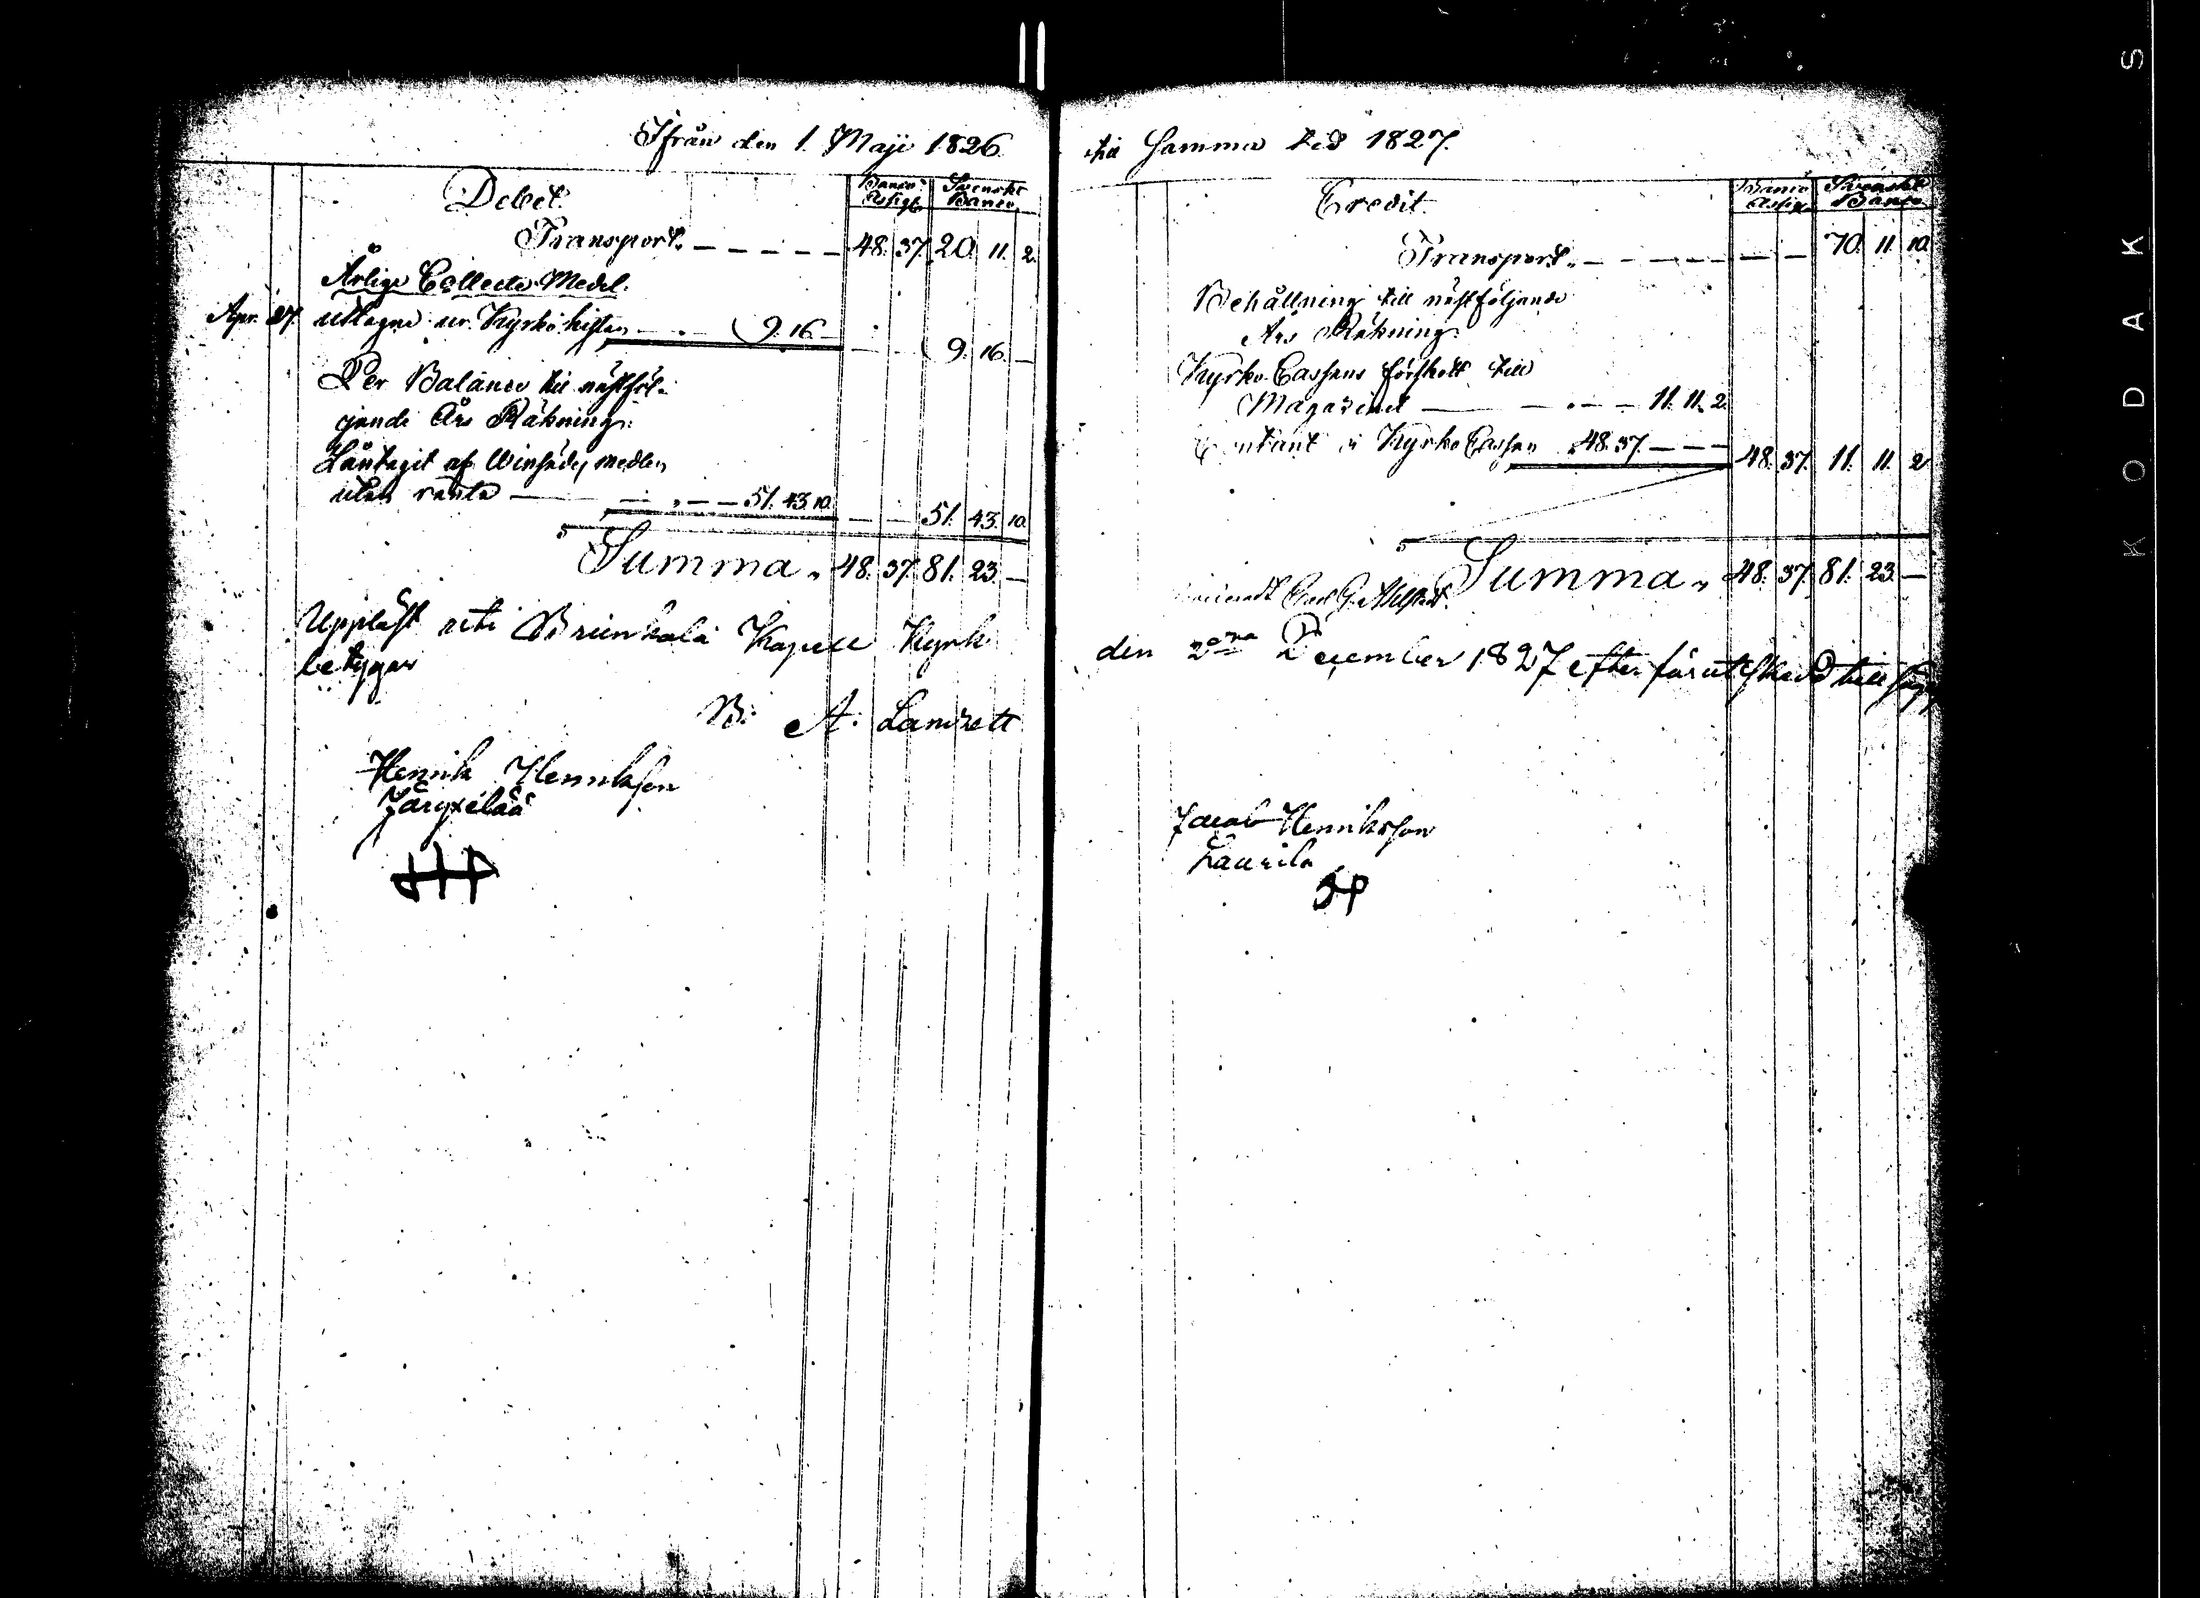 Ifrån den 1. Maji 1826
Debet. Banco Assign. Svenskt Banco
Transport. 48. 37. 20. 11. 2.
Årlige Collecte Medel.
Apr. 27. uttagne ur Kyrko kistan 9. 16. —
9. 16. —
Per Balance till nästföl-
jande Års Räkning:
Låntagit af Winsädes medlen
utan ränta 51. 43. 10.
51. 43. 10.
Summa 48. 37. 81. 23. —
Uppläst uti Brunkala Kapell Kyrk
betygar
A. Landzett
Henrik Henriksson
till samma tid 1827.
Credit. Banco Assign. Svenskt Banco
Transport. 70. 11. 10.
Behållning till nästföljande
Års Räkning:
Kyrko Cassans förskott till
Magazinet 11. 11. 2.
Contant i Kyrko Cassan 48. 37. —
48. 37. 11. 11. 2
Summa 48. 37. 81. 23. —
den 2dra December 1827 efter förutskedd
Jacob Henriksson
Laurila
KODAK S